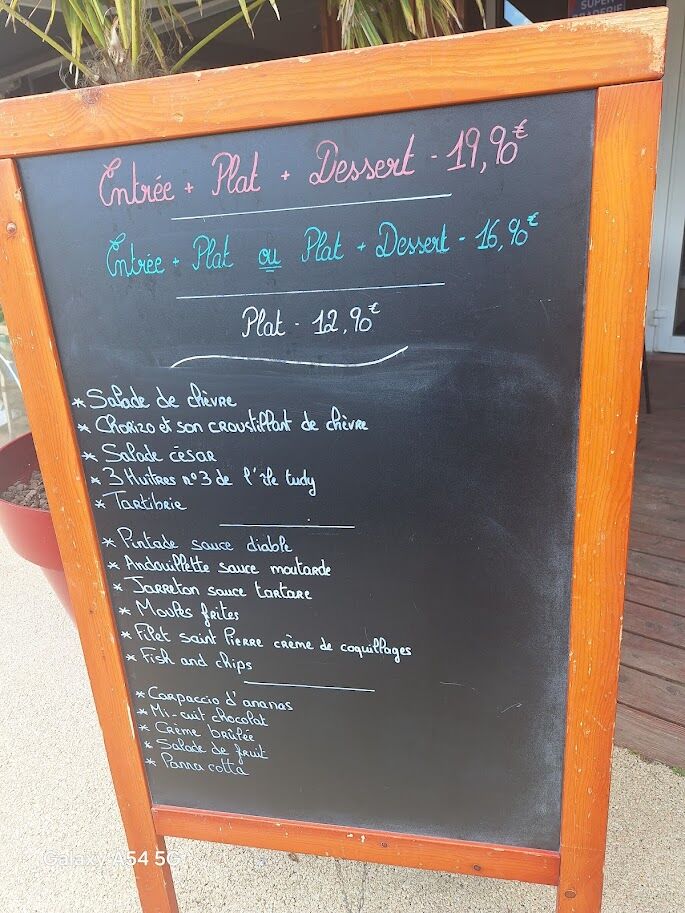 SUPER
Entrée + Plat + Dessert - 19,90€
Entrée + Plat ou Plat + Dessert - 16,90€
Plat - 12,90€
* Salade de chèvre
* Chorizo et son croustillant de chèvre
* Salade césar
* 3 Huîtres n°3 de l'île tudy
* Tartibrie
* Pintade sauce diable
* Andouillette sauce moutarde
* Jarreton sauce tartare
* Moules frites
* Filet saint Pierre crème de coquillages
* Fish and chips
* Carpaccio d'ananas
* Mi-cuit chocolat
* Crème brûlée
* Salade de fruit
* Panna cotta
Galaxy A54 5G